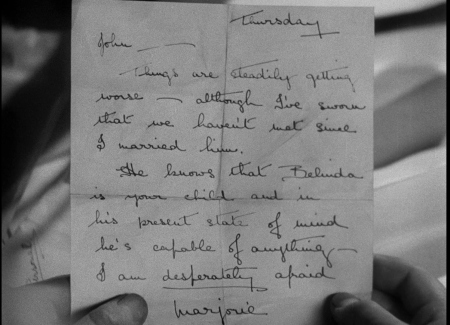 Thursday
John —
Things are steadily getting
worse — although I've sworn
that we haven't met since
I married him.
He knows that Belinda
is your child and in
his present state of mind
he's capable of anything —
I am desperately apraid
Marjorie